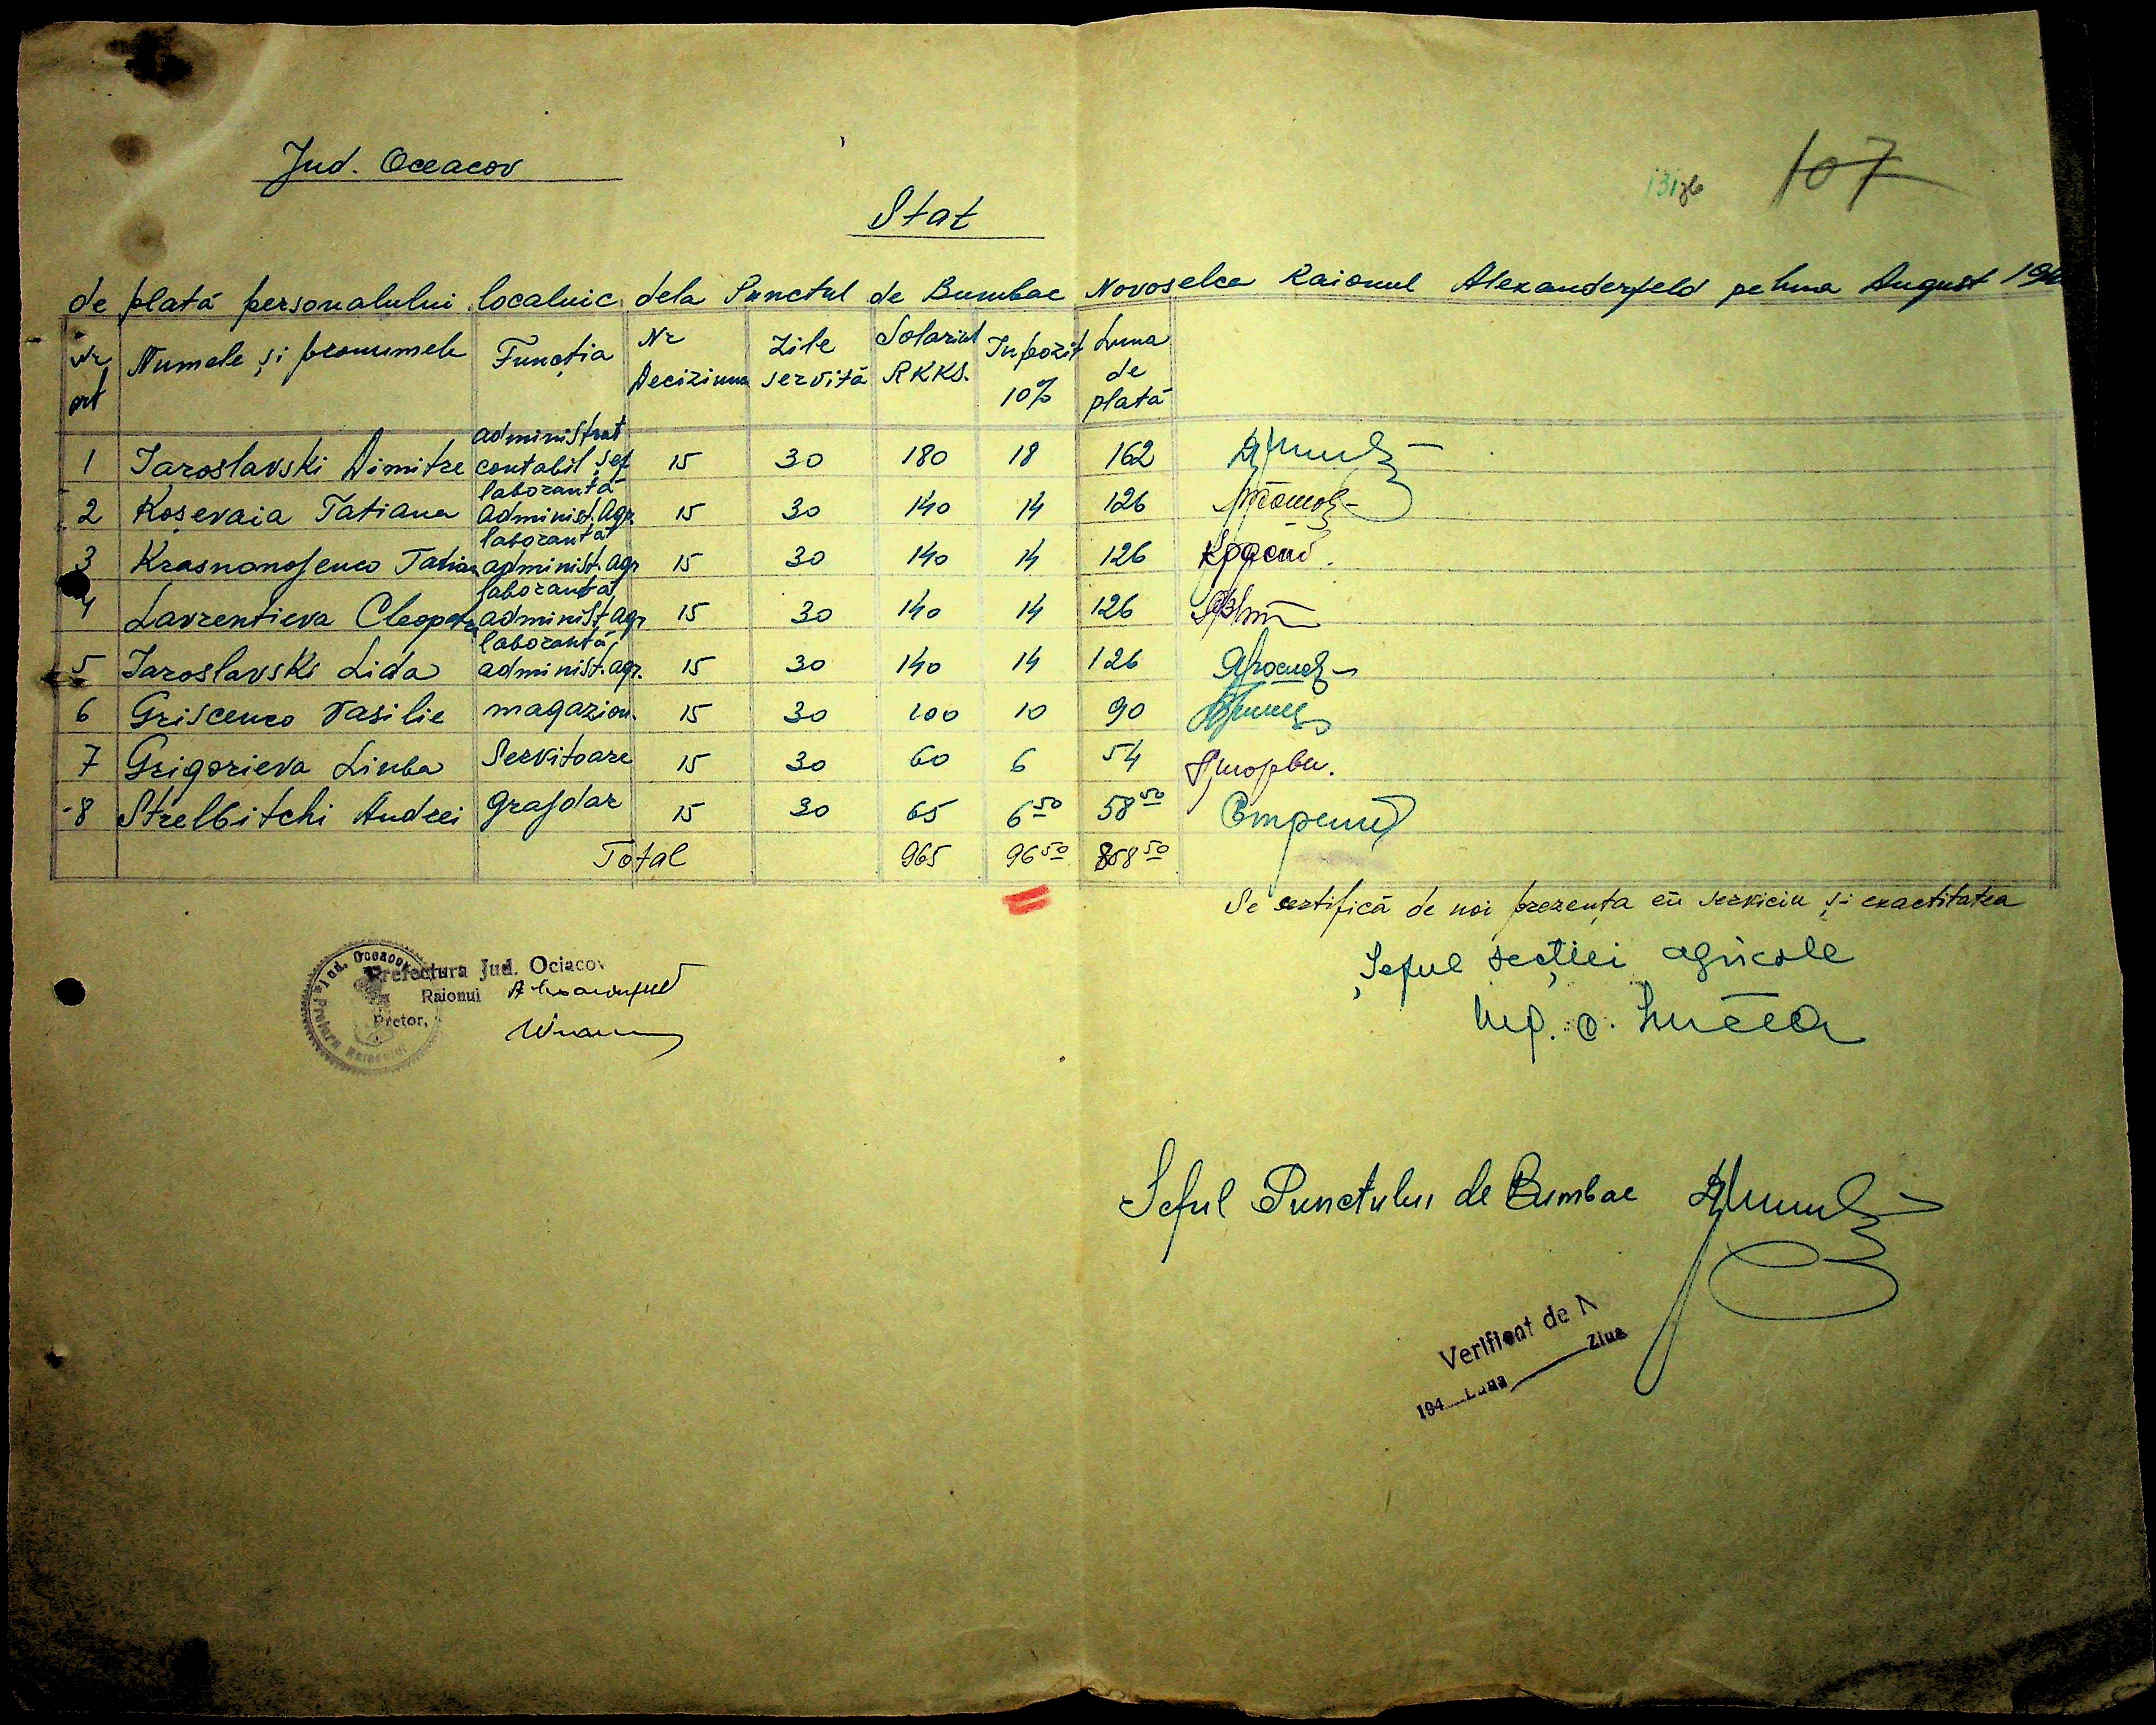 Jud. Oceacov
131 76 107
Stat
de plată personalului localnic dela Punctul de Bumbac Novoselca Raionul Alexanderfeld pe luna August 194
Nr crt Numele și pronumele Funcția Nr Deciziuna Zile servită Solariul RKKS. Inpozit 10% Luna de plată
1 Iaroslavski Dimitre administrat contabil șef 15 30 180 18 162
2 Koșevaia Tatiana laborantă administ. agr. 15 30 140 14 126
3 Krasnonosenco Tatiana laborantă administ. agr 15 30 140 14 126
4 Lavrentieva Cleopatra laborantă administ agr 15 30 140 14 126
5 Iaroslavski Lida laborantă administ. agr. 15 30 140 14 126
6 Grișcenco Vasilie magazion. 15 30 100 10 90
7 Grigorieva Liuba Servitoare 15 30 60 6 54
8 Strelbitchi Andrei grajdar 15 30 65 6 50 58 50
Total 965 96 50 868 50
Se certifică de noi prezența en serviciu și exactitatea
Șeful secției agricole
Jud. Oceacov
Prefectura Jud. Ociacov
Raionul
Pretor,
Șeful Punctului de Bumbac
Verificat de No
194 Luna Ziua